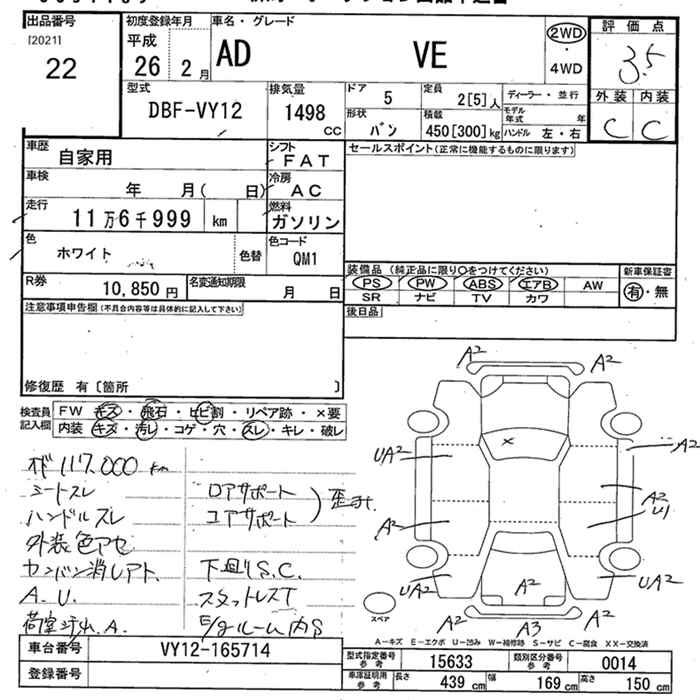 出品番号
[2021]
22
初度登録年月
平成
26 2月
車名・グレード
AD VE
2WD・
4WD
評価点
3.5
外装 内装
C C
型式
DBF-VY12
排気量
1498
CC
ドア 5
形状 バン
定員 2[5]人
積載 450[300]kg
ディーラー・並行
モデル年式 年
ハンドル 左・右
車歴 自家用
シフト FAT
車検 年 月( 日)
冷房 AC
走行 11万6千999 km
燃料 ガソリン
色 ホワイト
色替
色コード QM1
R券 10,850円
名変通知期限 月 日
セールスポイント(正常に機能するものに限ります)
装備品(純正品に限り○をつけてください)
PS PW ABS エアB AW
SR ナビ TV カワ
新車保証書
有・無
後日品
注意事項申告欄(不具合内容等は具体的に記入して下さい)
修復歴 有〔箇所 〕
検査員記入欄
FW キズ・飛石・ヒビ割・リペア跡・×要
内装 キズ・汚レ・コゲ・穴・スレ・キレ・破レ
117.000 km
シートスレ
ハンドルスレ
外装色アセ
カンバン消しアト.
A.U.
コアサポート
下廻りS.C.
スタットレスT
E/gルーム内S
A2 A2
UA2 A2
A2
U1
A2
UA2 A2 UA2
A2 A3 A2
×
スペア
A-キズ E-エクボ U-凹み W-補修跡 S-サビ C-腐食 XX-交換済
車台番号 VY12-165714
登録番号
型式指定番号 参考 15633
類別区分番号 参考 0014
車庫証明用 参考 長さ 439 cm 幅 169 cm 高さ 150 cm